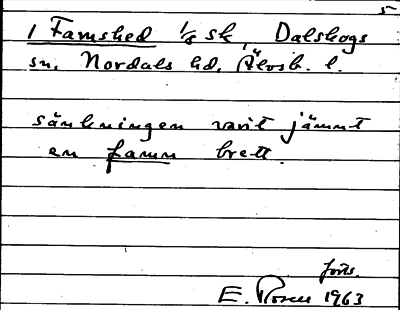 5
1 Famshed 1/8 sk, Dalskogs
sn. Nordals hd. Älvsb. l.
sänkningen varit jämnt
en famn brett.
forts.
E. Rosen 1963